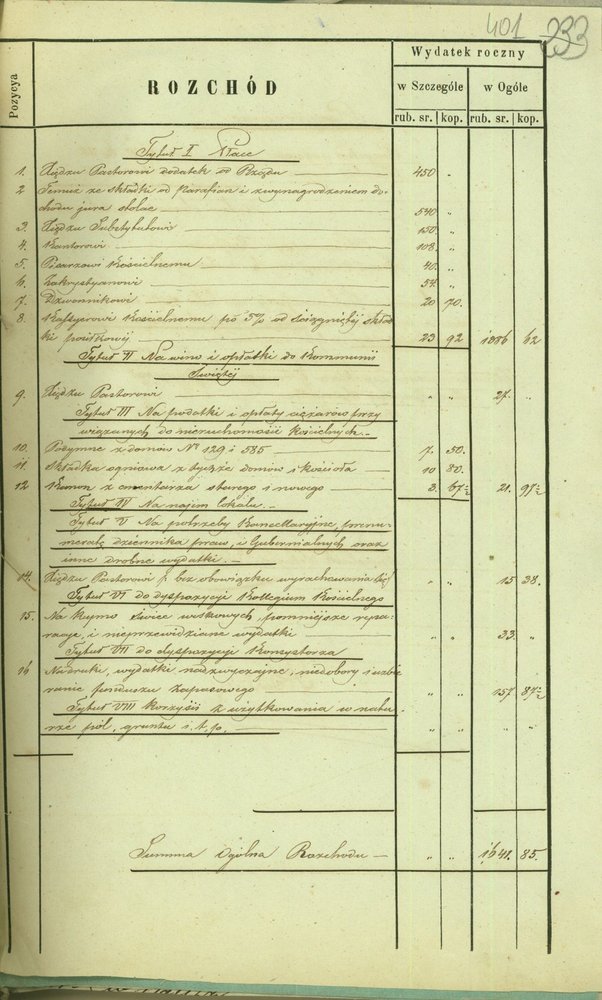 401 233
Wydatek roczny
Pozycya ROZCHÓD w Szczególe w Ogóle
rub. sr. kop. rub. sr. kop.
Tytuł I Płace
1. Xiędzu Pastorowi dodatek od Rządu 450 "
2 Temuż ze składki od Parafian i z wynagrodzeniem do-
chodu jura stolae 540 "
3. Xiędzu Substytutowi 150 "
4. Kantorowi 108 "
5. Pisarzowi Kościelnemu 40 "
6. Zakrystyanowi 54 "
7. Dzwonnikowi 20 70.
8. Kassyerowi Kościelnemu po 5% od ściągniętej skład
ki 23 92 1386 62
Tytuł II Na wino i opłatki do Kommunii
Świętej
9. Xiędzu Pastorowi " " 27. "
Tytuł III Na podatki i opłaty ciężarów przy
wiązanych do nieruchomości kościelnych
10. Podymne z domów Nº 129 i 585 7. 50.
11. Składka ogniowa z tychże domów i kościoła 10 80.
12 Kanon z cmentarza starego i nowego 3. 67½ 21. 97½
Tytuł IV Na najem lokalu
Tytuł V Na potrzeby Kancellaryjne, prenu-
meratę dziennika praw, i Gubernialnych oraz
inne drobne wydatki.
14. Xiędzu Pastorowi p. bez obowiązku wyrachowania się " " 15 38.
Tytuł VI do dyspozycji Kollegium Kościelnego
15. Na kupno świec woskowych, pomniejsze repa-
racye, i nieprzewidziane wydatki " " 33. "
Tytuł VII do dyspozycji Konsystorza
16 Na druki, wydatki nadzwyczajne, niedobory i uzbie
ranie funduszu Zapasowego " " 157 87½
Tytuł VIII Korzyści z użytkowania w natu-
rze pól, gruntu i.t.p. " " " "
Summa Ogólna Rozchodu " " 1641. 85.